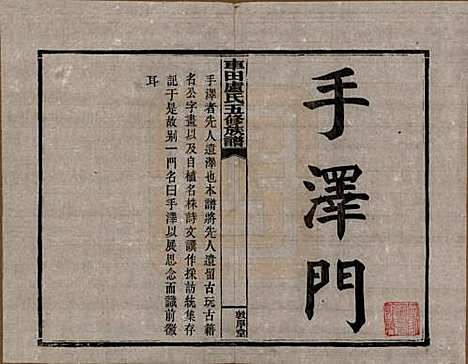 手澤門
車田盧氏五修族譜
敦厚堂
手澤者先人遺澤也本譜將先人遺留古玩古籍
名公字畫以及自植名株詩文譔作採訪統集存
記于是故別一門名曰手澤以展思念而識前徽
耳